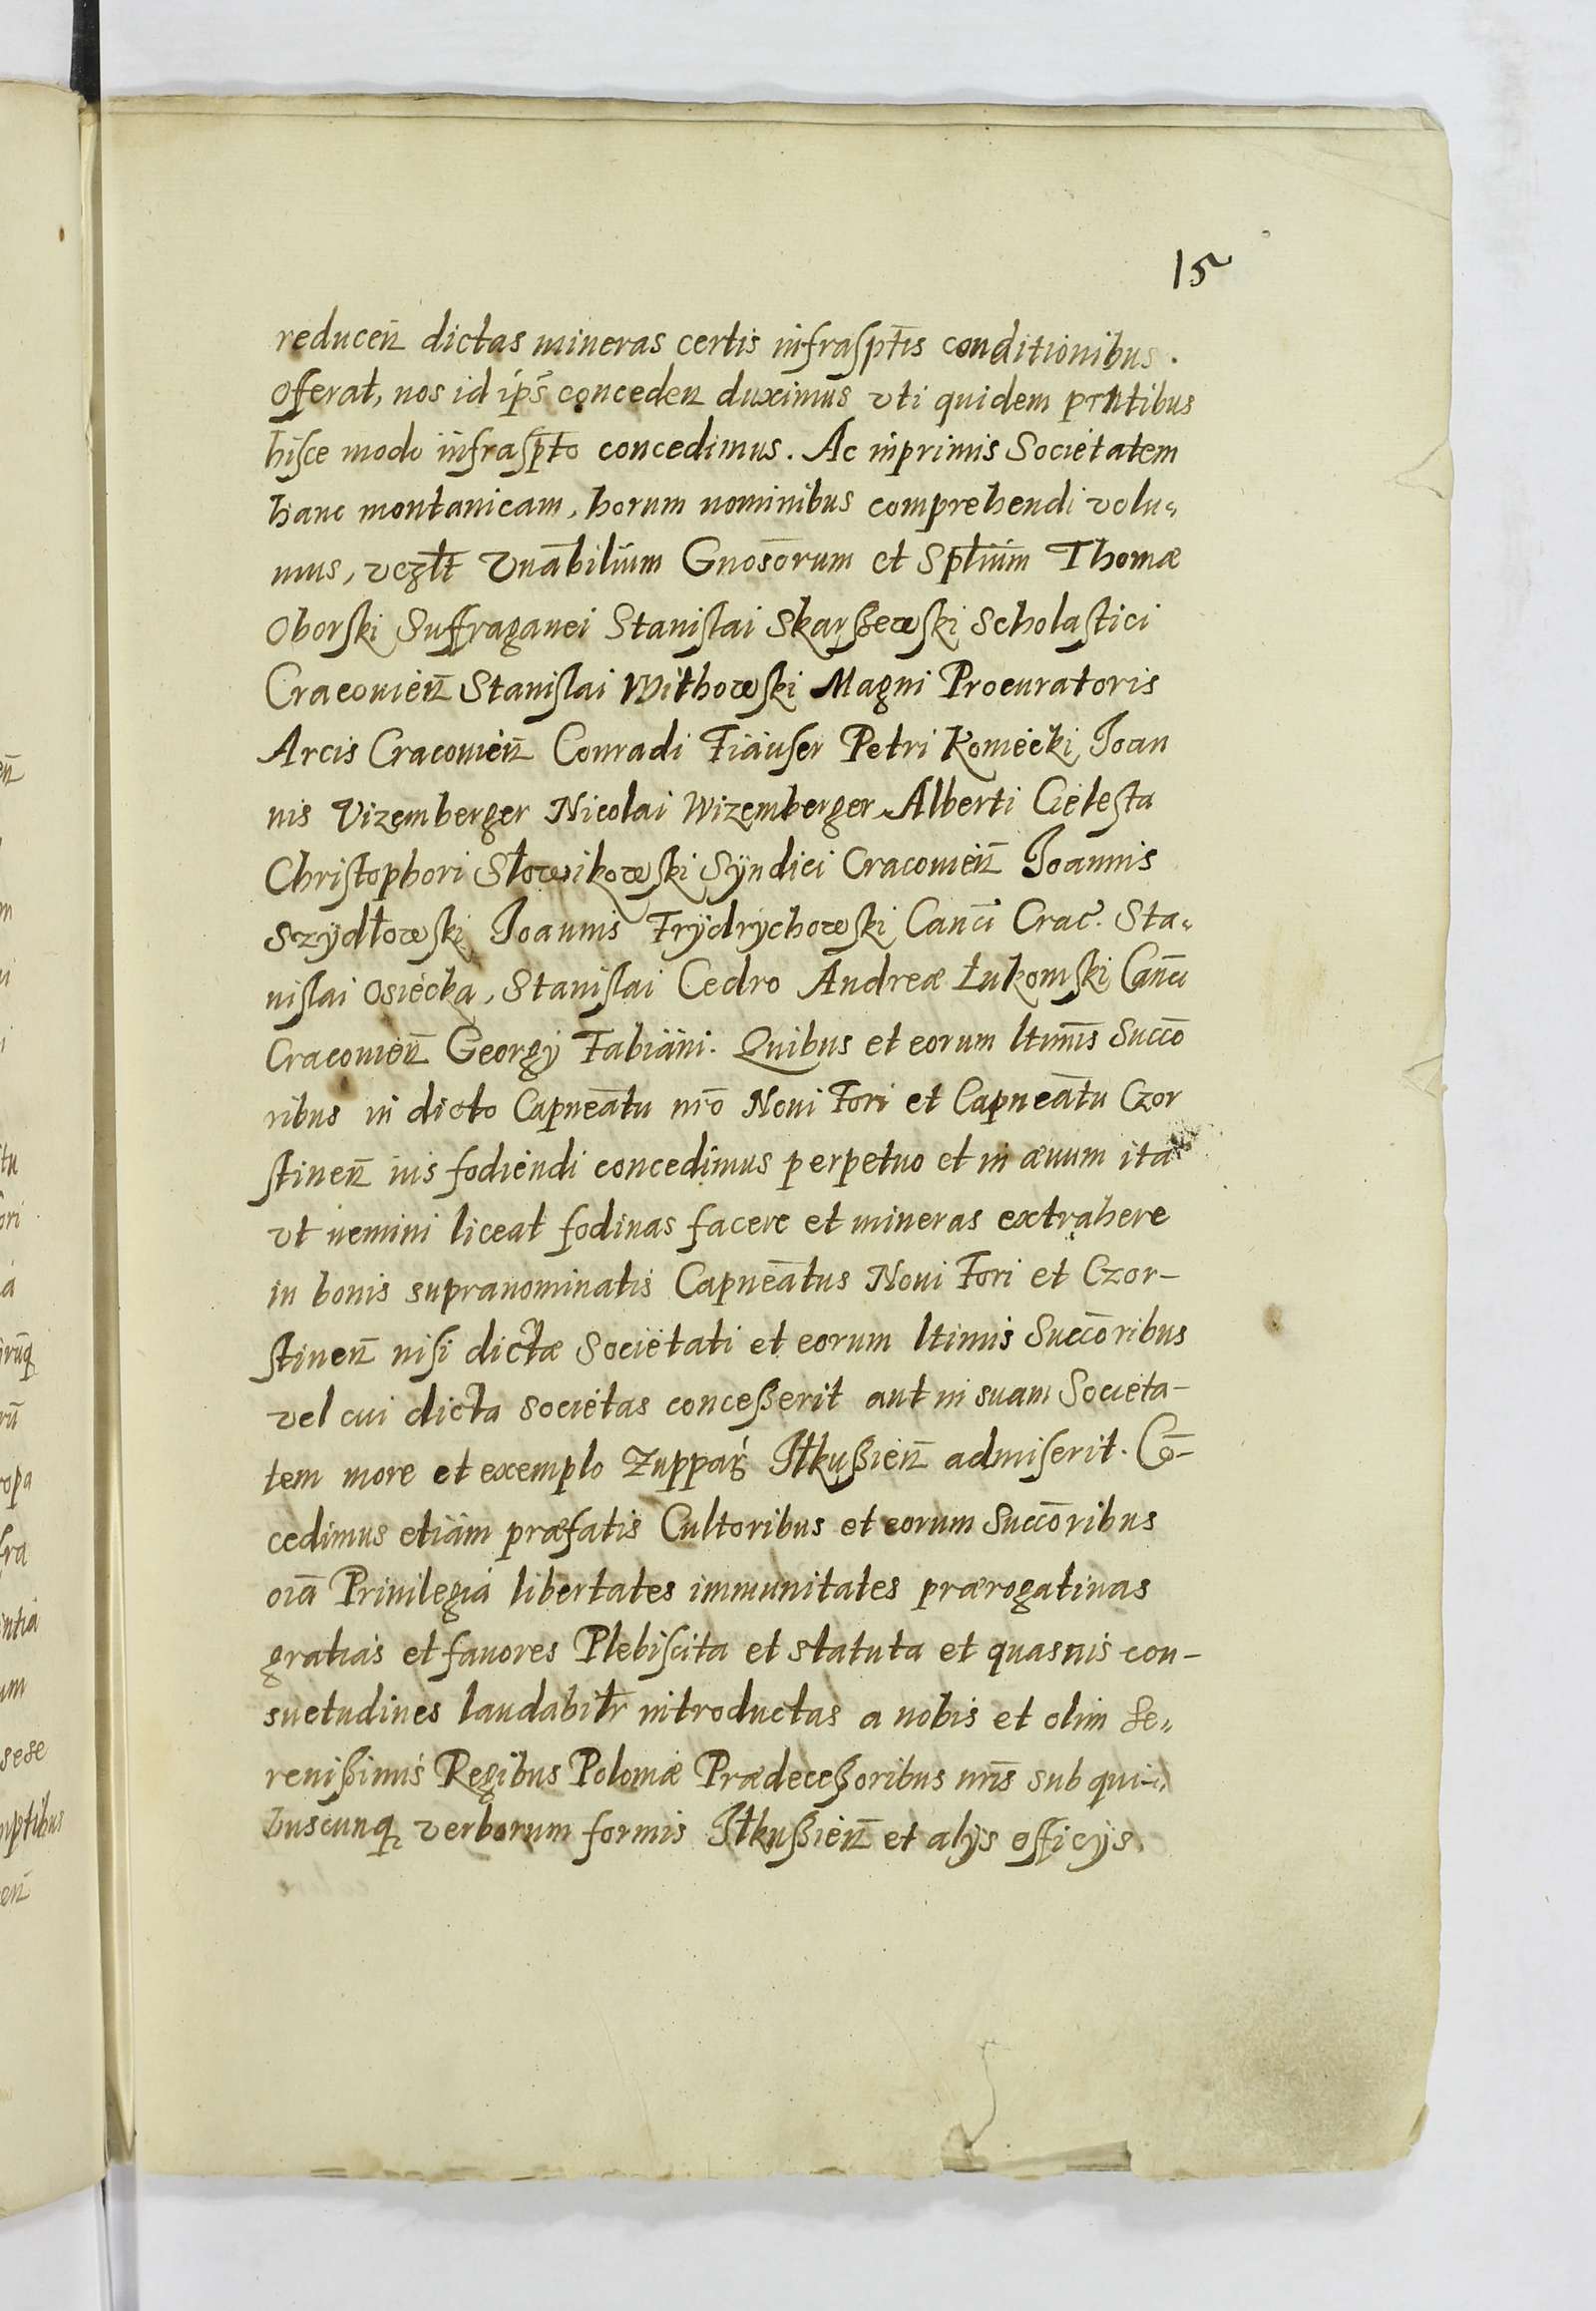 15
reducen̄ dictas mineras certis infrasptīs conditionibus.
offerat, nos id ip̄s conceden duximus vti quidem prntibus
hisce modo infrasp̄to concedimus. Ac inprimis Societatem
hanc montanicam, horum nominibus comprehendi volu„
mus, vczlt Vnābilium Gnosōrum et Sptlium Thomæ
Oborski Suffraganei Stanislai Skarßewski Scholastici
Cracovien̄ Stanislai Withowski Magni Procuratoris
Arcis Cracovien̄ Conradi Fiäuser Petri Komečki Joan
nis Vizemberger Nicolai Wizemberger Alberti Cielesta
Christophori Słowikowski Sÿndici Cracovien̄ Joannis
Szÿdłowski Joannis Frÿdrÿchowski Canci Crac. Sta„
nislai Osiecka, Stanislai Cedro Andreæ Łukomski Canci
Cracovien̄ Georgÿ Fabiäni. Quibus et eorum ltimīs Succō
ribus in dicto Capneātu nrō Noui Fori et Capneātu Czor
stinen̄ ius fodiendi concedimus perpetuo et in æuum ita
vt nemini liceat fodinas facere et mineras extrahere
in bonis supranominatis Capneātus Noui Fori et Czor-
stinen̄ nisi dictæ Societati et eorum ltimis Succōribus
vel cui dicta Societas conceßerit aut in suam Societa-
tem more et exemplo Zuppar̄ Ilkußien̄ admiserit. Cō-
cedimus etiäm præfatis Cultoribus et eorum Succōribus
oiā Priuilegia libertates immunitates prærogatiuas
gratias et fauores Plebiscita et statuta et quasuis con-
suetudines laudabiłr introductas a nobis et olim Se„
renißimis Regibus Poloniæ Prædeceßoribus nrīs sub qui-
buscunq; verborum formis Ilkußien̄ et alÿs officÿs.